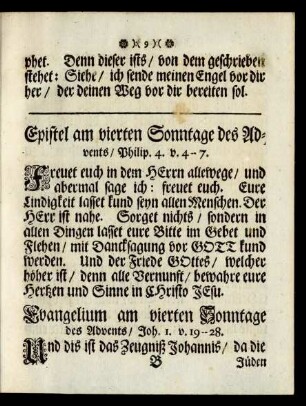 9
phet. Denn dieser ists / von dem geschrieben
stehet: Siehe / ich sende meinen Engel vor dir
her / der deinen Weg vor dir bereiten sol.
Epistel am vierten Sonntage des Ad-
vents / Philip. 4. v. 4-7.
Freuet euch in dem HErrn allewege / und
abermal sage ich: freuet euch. Eure
Lindigkeit lasset kund seyn allen Menschen. Der
HErr ist nahe. Sorget nichts / sondern in
allen Dingen lasset eure Bitte im Gebet und
Flehen / mit Dancksagung vor GOTT kund
werden. Und der Friede GOttes / welcher
höher ist / denn alle Vernunft / bewahre eure
Hertzen und Sinne in CHristo JEsu.
Evangelium am vierten Sonntage
des Advents / Joh. 1. v. 19-28.
Und dis ist das Zeugniß Johannis / da die
B Jüden